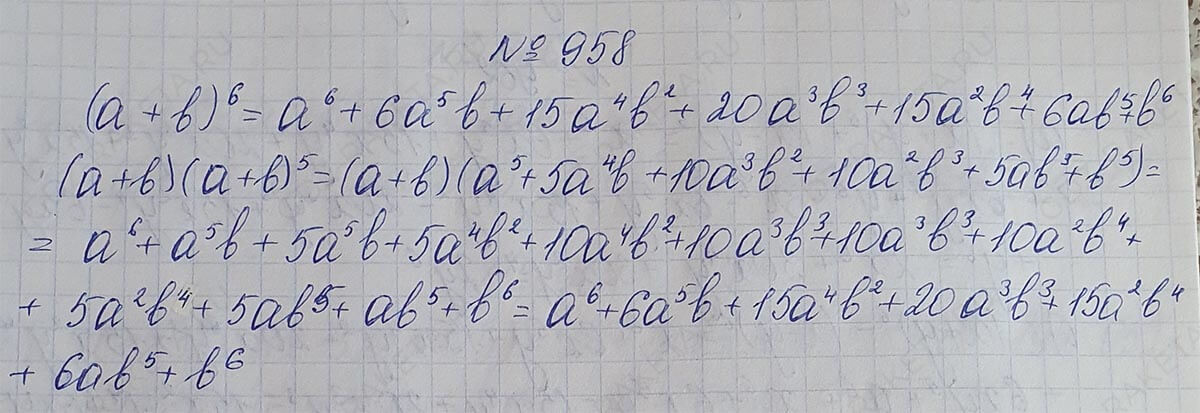 № 958
(a + b)⁶ = a⁶ + 6a⁵b + 15a⁴b² + 20a³b³ + 15a²b⁴ + 6ab⁵ + b⁶
(a+b)(a+b)⁵ = (a+b)(a⁵ + 5a⁴b + 10a³b² + 10a²b³ + 5ab³ + b⁵) =
= a⁶ + a⁵b + 5a⁵b + 5a⁴b² + 10a⁴b² + 10a³b³ + 10a³b³ + 10a²b⁴ +
+ 5a²b⁴ + 5ab⁵ + ab⁵ + b⁶ = a⁶ + 6a⁵b + 15a⁴b² + 20a³b³ + 15a²b⁴
+ 6ab⁵ + b⁶